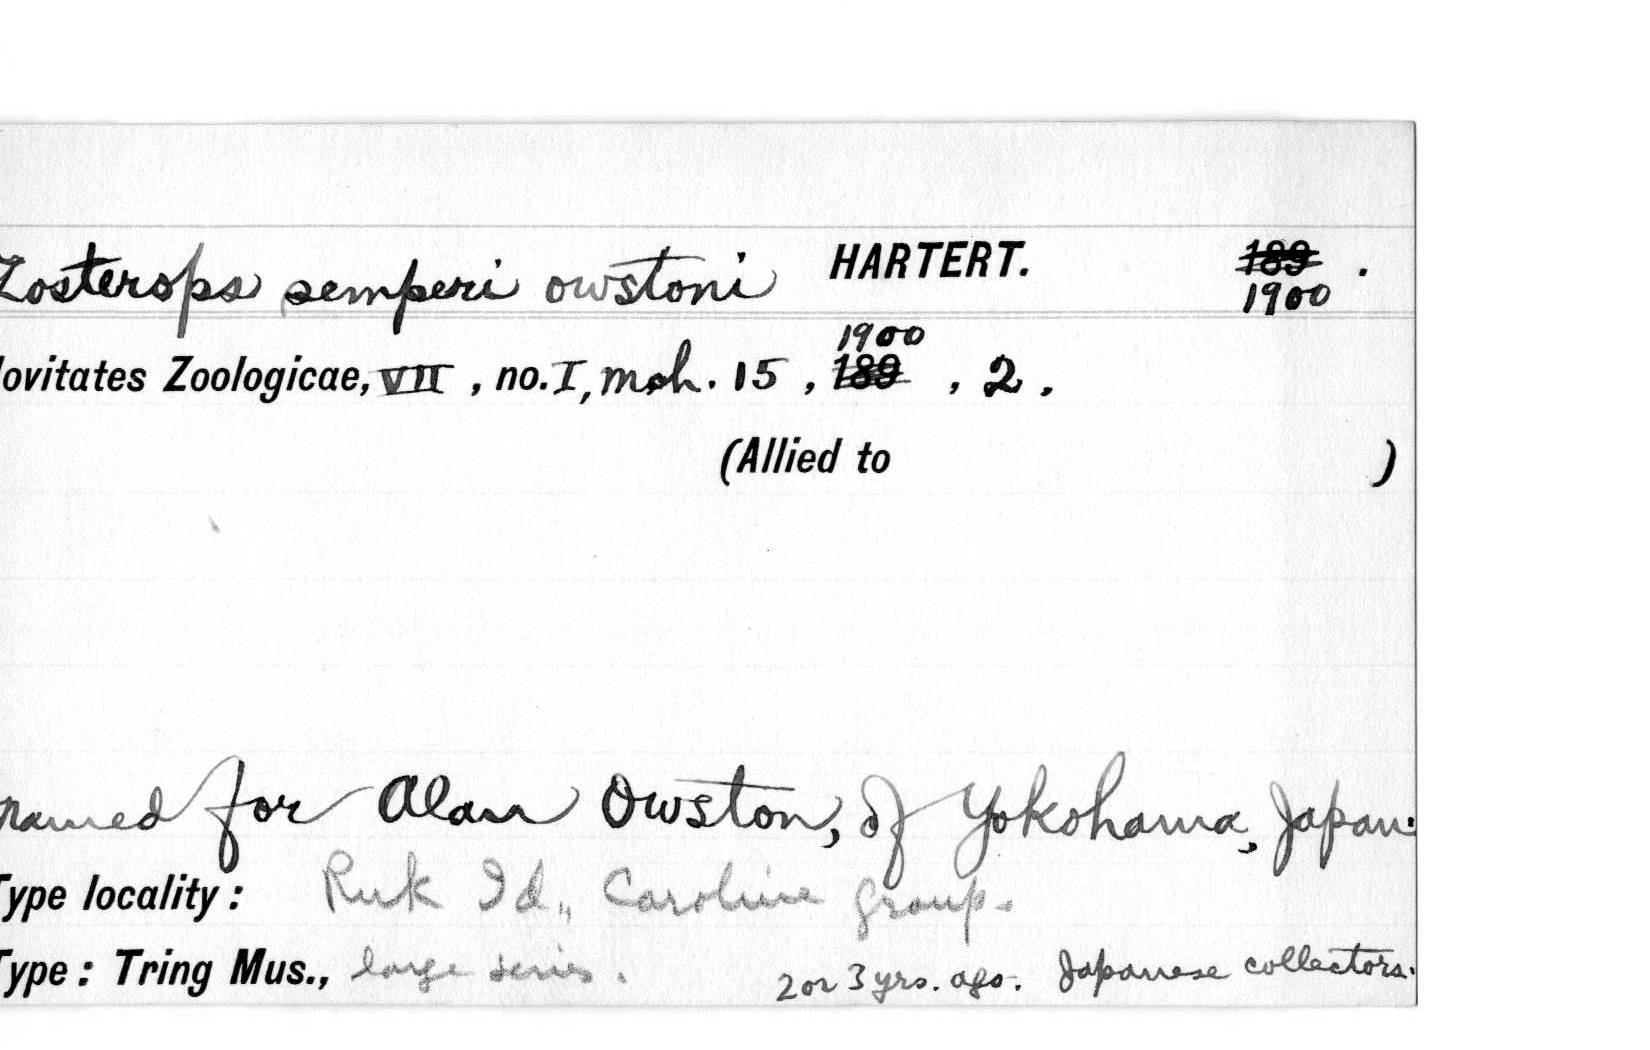 Zosterops semperi owstoni HARTERT. 189 .
1900
1900
ovitates Zoologicae, VII , no. I, mch. 15 , 189 , 2 .
(Allied to )
named for Alan Owston, of Yokohama, Japan.
Type locality: Ruk Id., Caroline group.
Type: Tring Mus., large series. 2 or 3 yrs. ago. Japanese collectors.